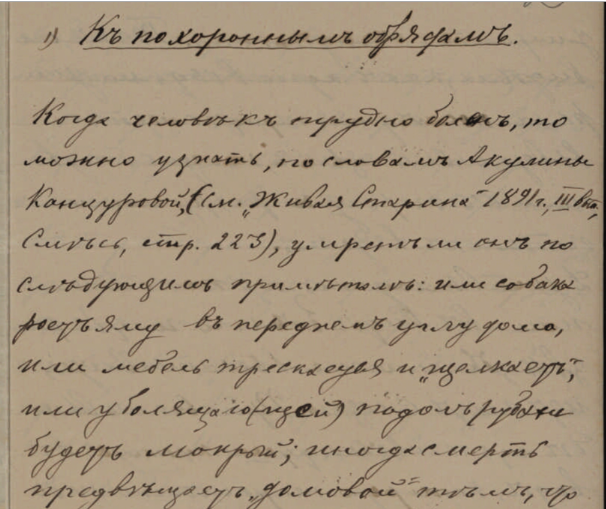 1) Къ похороннымъ обрядамъ.
Когда человѣкъ трудно боленъ, то
можно узнать, по словамъ Акулины
Канцуровой, (см. „Живая Старина" 1891 г., III вып.,
Смѣсь, стр. 223), умретъ ли онъ по
слѣдующимъ примѣтамъ: или собака
роетъ яму въ переднемъ углу дома,
или мебель трескается и „щелкаетъ",
или у болящаго (щей) подолъ рубахи
будетъ мокрый; иногда смерть
предвѣщаетъ „домовой" тѣмъ, что